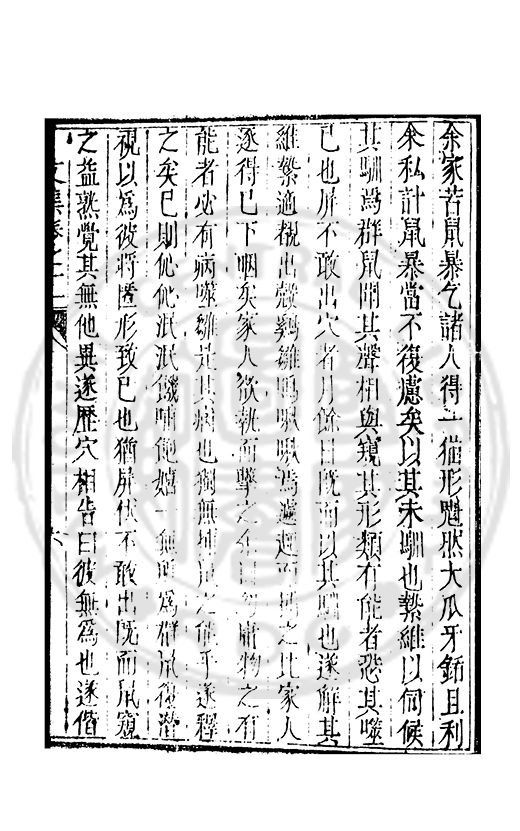 余家苦鼠暴乞諸人得一猫形魁然大爪牙銛且利
余私計鼠暴當不復慮矣以其未馴也縶維以伺候
其馴焉群鼠聞其聲相與窺其形類有能者恐其噬
已也屏不敢出穴者月餘日既而以其馴也遂解其
維縶適覩出殼鷄雛鳴啾啾焉遽起而捕之比家人
逐得已下咽矣家人欲執而擊之余曰勿庸物之有
能者必有病噬雛是其病也獨無捕鼠之能乎遂釋
之矣已則伈伈泯泯饑哺飽嬉一無所為群鼠復潛
視以為彼將匿形致已也猶屏伏不敢出既而鼠窺
之益熟覺其無他異遂歷穴相告曰彼無為也遂偕
文集卷之十一